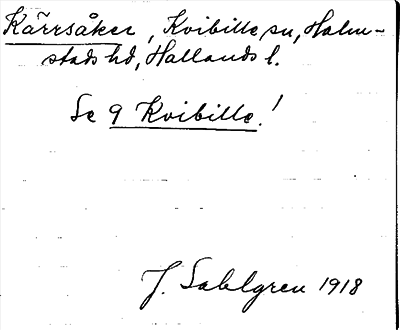 Kärrsåker, Kvibille sn, Halm-
stads hd, Hallands l.
Se 9 Kvibille!
J. Sahlgren 1918